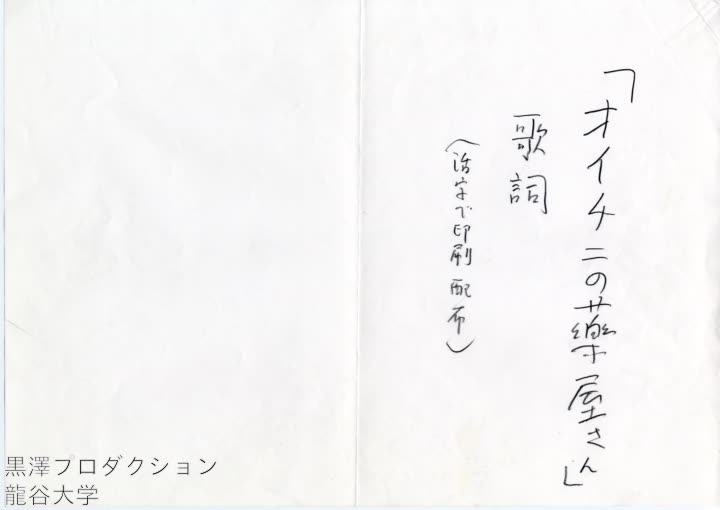 「オイチニの薬屋さん」
歌詞
(活字で印刷配布)
黒澤プロダクション
龍谷大学